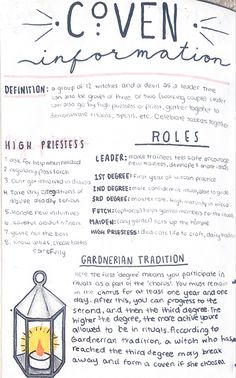 COVEN
information
DEFINITION: a group of 12 witches and a devil as a leader. They
can also be group of three or two (working couple). Leader
can also go by high priestess or priest, gather together to
demonstrate rituals, spells, etc. Celebrate sabbats together
HIGH PRIESTESS
1. ask for help when needed
2. regularly pass torch
3.
4. Take any
abuse deadly serious
5. Handle new initiates
6.
7. you're not the boss
8. know
carefully
ROLES
LEADER: make trainees feel safe, encourage
new trainees,
1ST DEGREE: first year of wiccan practice
2ND DEGREE: more confident
3RD DEGREE: master role, high
FETCH: (optional) helps gather members for the rituals
MAIDEN: sets up the temple
HIGH PRIESTESS: dedicates life to craft, daily
GARDNERIAN TRADITION
Here the first 'degree' means you participate in
rituals as a part of the 'chorus'. You must remain
in the chorus for at least one year and one
day. After this, you can progress to the
second, and then the third degree. The
higher the degree, the more active you're
allowed to be in rituals. According to
Gardnerian tradition, a witch who has
reached the third degree may break
away and form a coven if she chooses